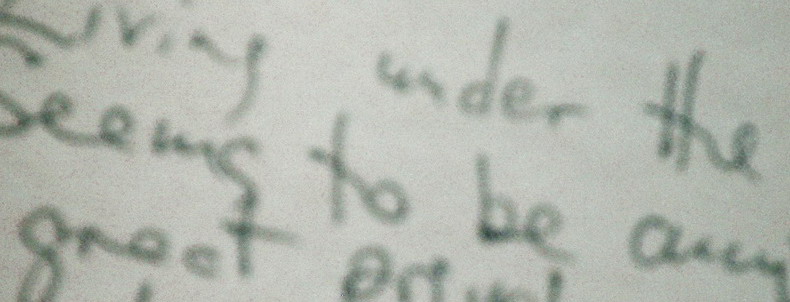 Living under the
seems to be
great